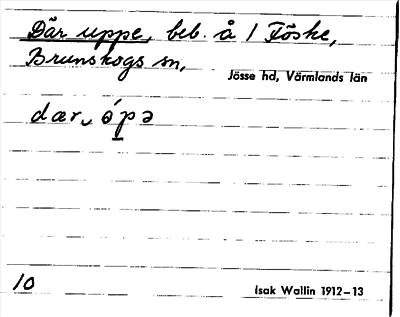 Där uppe, beb. å 1 Töske,
Brunskogs sn,
Jösse hd, Värmlands län
dær ə́pə
10
Isak Wallin 1912–13